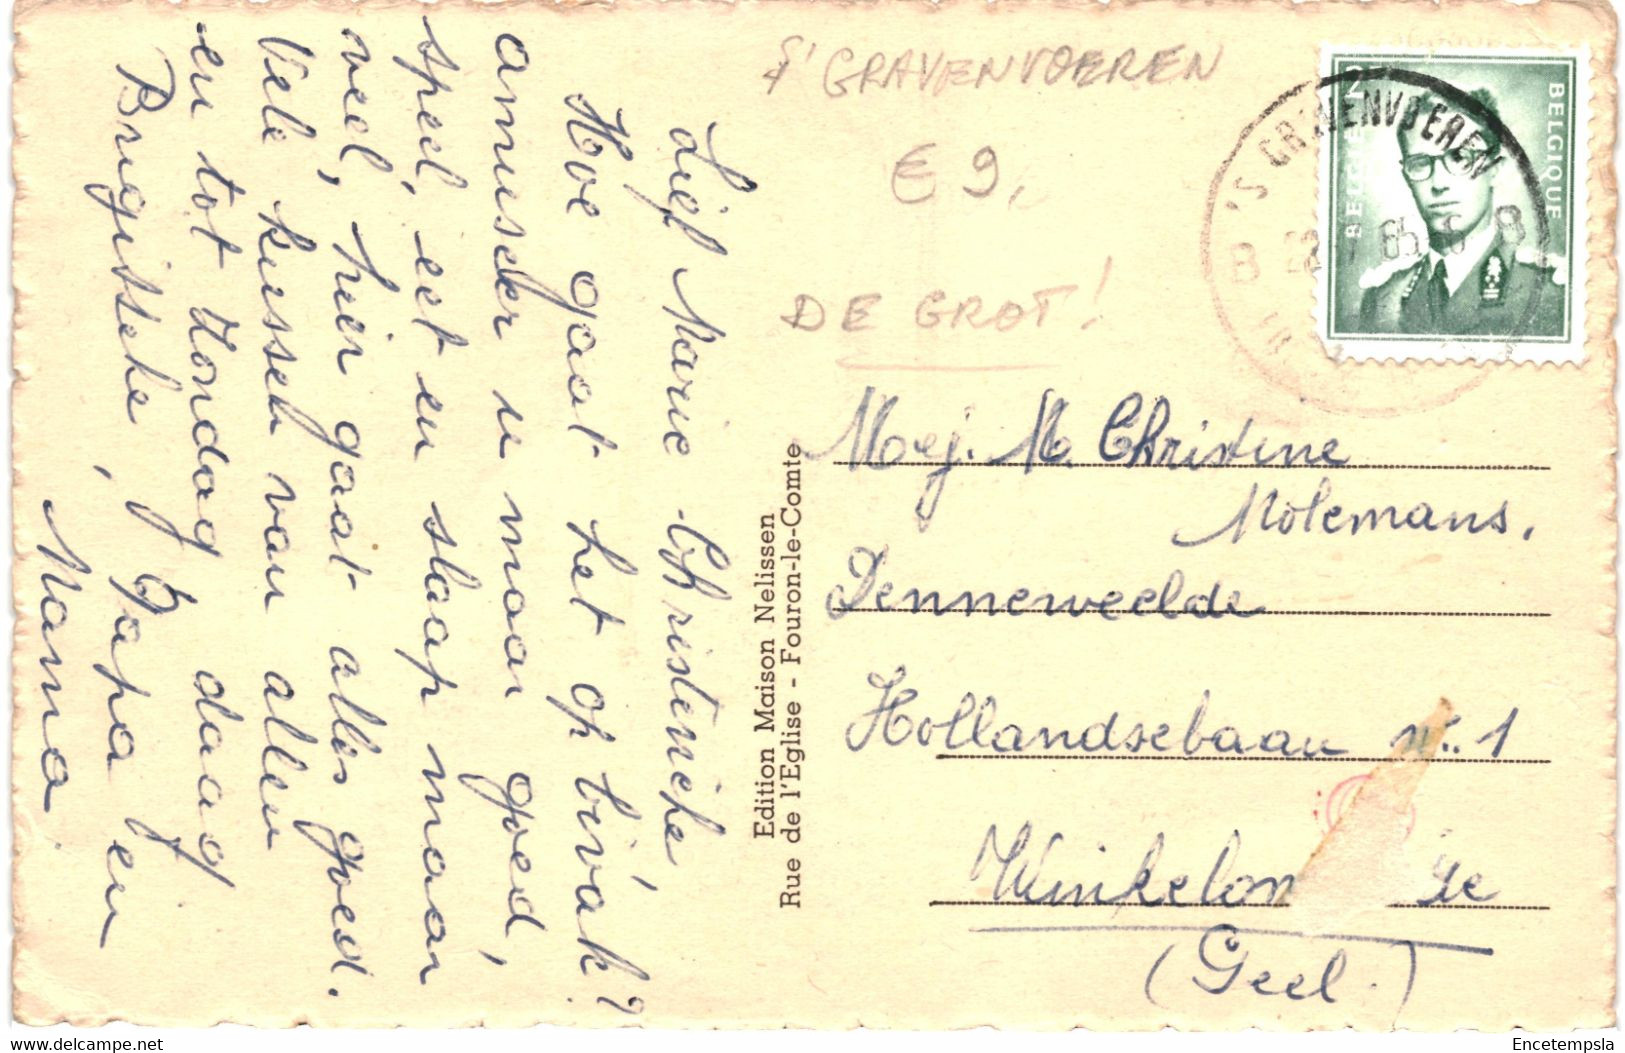 S' GRAVENVOEREN
€ 9,
DE GROT!
Lief Marie Christineke,
Hoe gaat het op bivak?
amuseer u maar goed,
speel, eet en slaap maar
veel, hier gaat alles goed.
Vele kussen van allen
en tot Zondag daag
Brigitteke, Papa en
Mama
Edition Maison Nelissen
Rue de l'Eglise - Fouron-le-Comte
BELGIE BELGIQUE
'S GRAVENVOEREN
B
65
Mej. M. Christine
Molemans.
Denneweelde
Hollandsebaan nr. 1
(Geel.)
delcampe.net
Encetempsla